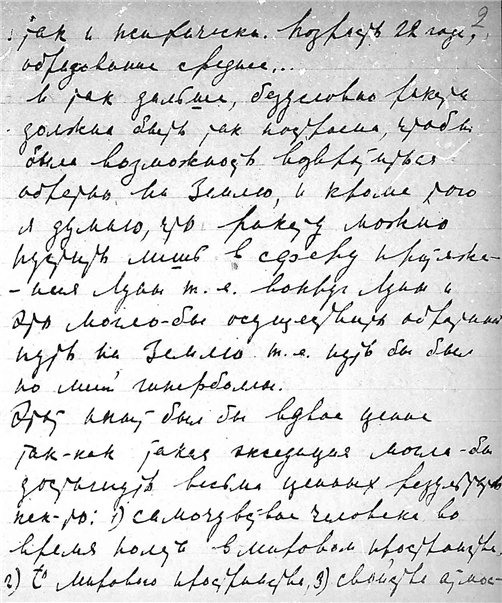 2
так и психически. Возраст 22 года,
образование среднее...
И так дальше, безусловно ракета
должна быть так построена, чтобы
была возможность возвратиться
обратно на Землю, и кроме того
я думаю, что ракету можно
пустить лишь в сферу притяже-
-ния Луны т.е. вокруг Луны и
это могло-бы осуществить обратный
путь на Землю т.е. путь бы был
по линии гиперболы.
Этот опыт был бы вдвое ценнее
так-как такая экспедиция могла-бы
достигнуть весьма ценных результатов
как-то: 1) самочувствие человека во
время полета в мировом пространстве,
2) t° мирового пространства, 3) свойства атмос-